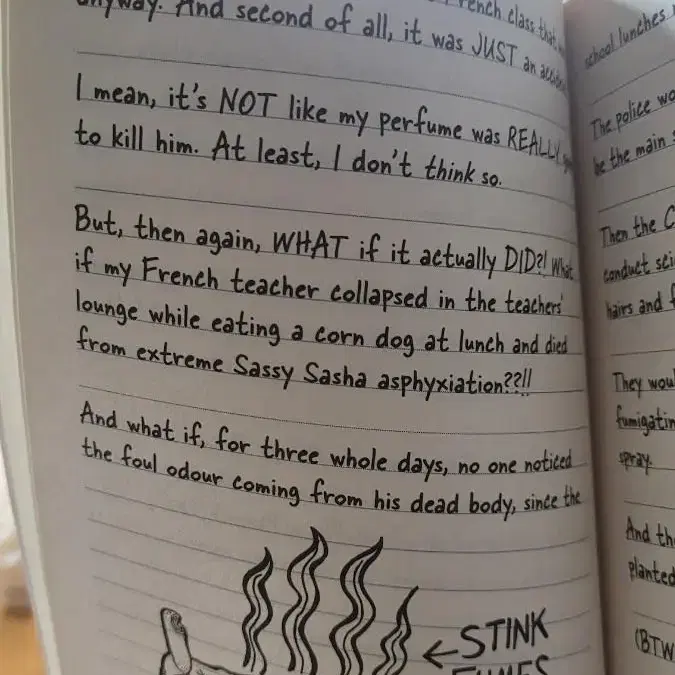 anyway. And second of all, it was JUST an
French class that
I mean, it's NOT like my perfume was REALLY
to kill him. At least, I don't think so.
But, then again, WHAT if it actually DID?! What
if my French teacher collapsed in the teachers'
lounge while eating a corn dog at lunch and died
from extreme Sassy Sasha asphyxiation??!!
And what if, for three whole days, no one noticed
the foul odour coming from his dead body, since the
←STINK
FUMES
school lunches
The police
be the main
Then the
conduct
hairs and
They
spray.
And
planted
(BTW